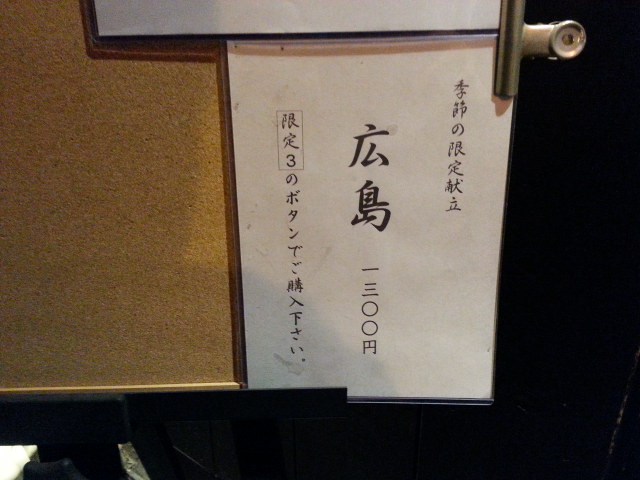 季節の限定献立
広島 一三〇〇円
限定3のボタンでご購入下さい。